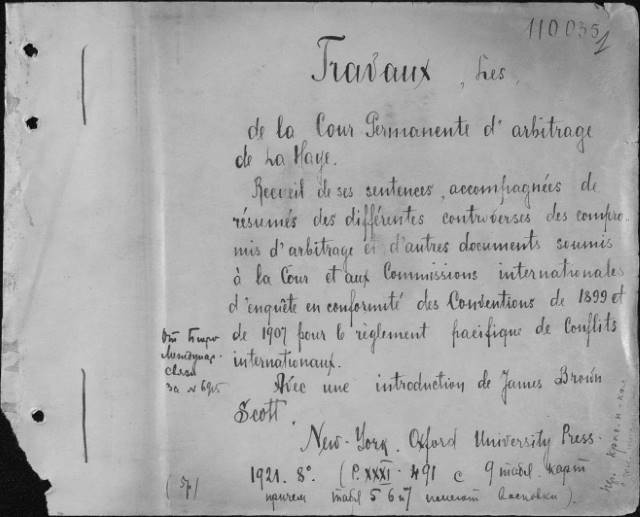 110035
1
Travaux, Les,
de la Cour Permanente d'arbitrage
de La Haye.
Recueil de ses sentences, accompagnées de
résumés des différentes controverses des compro-
mis d'arbitrage et d'autres documents soumis
à la Cour et aux Commissions internationales
d'enquête en conformité des Conventions de 1899 et
de 1907 pour le règlement pacifique de Conflits
internationaux.
Avec une introduction de James Brown
Scott.
New-York. Oxford University Press.
1921. 8°. (P. XXXI - 491 с 9 табл. карт
причем табл 5 6 и 7
(5р)
От Бюро
Междунар.
связи
за №